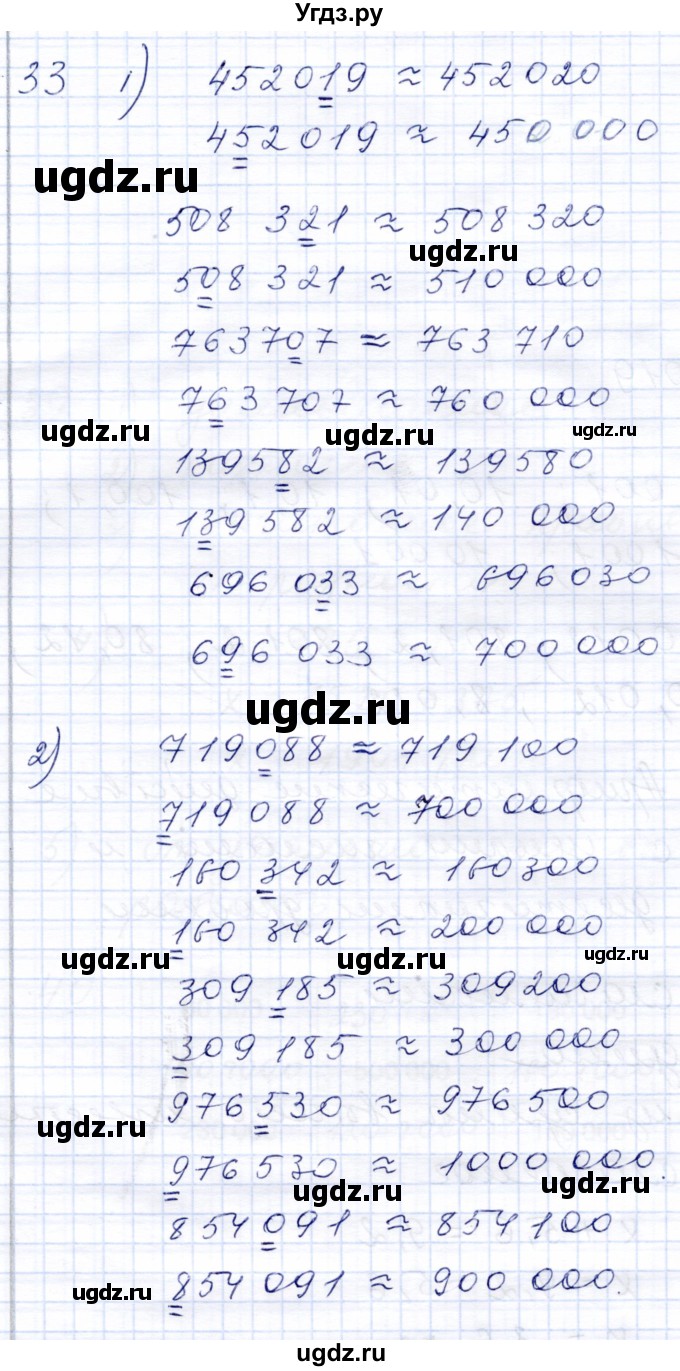 Угдз.ру
33 1) 452019 ≈ 452020
452019 ≈ 450 000
ugdz.ru
508 321 ≈ 508 320
ugdz.ru
508 321 ≈ 510 000
763707 ≈ 763 710
763 707 ≈ 760 000
ugdz.ru ugdz.ru ugdz.ru
139582 ≈ 139580
139 582 ≈ 140 000
696 033 ≈ 696030
696 033 ≈ 700 000
ugdz.ru
2) 719088 ≈ 719 100
719 088 ≈ 700 000
160 342 ≈ 160300
160 342 ≈ 200 000
ugdz.ru ugdz.ru ugdz.ru
309 185 ≈ 309200
309 185 ≈ 300 000
976 530 ≈ 976 500
ugdz.ru
976 530 ≈ 1000 000.
ugdz.ru ugdz.ru
854 091 ≈ 854 100
854 091 ≈ 900 000.
ugdz.ru
ugdz.ru